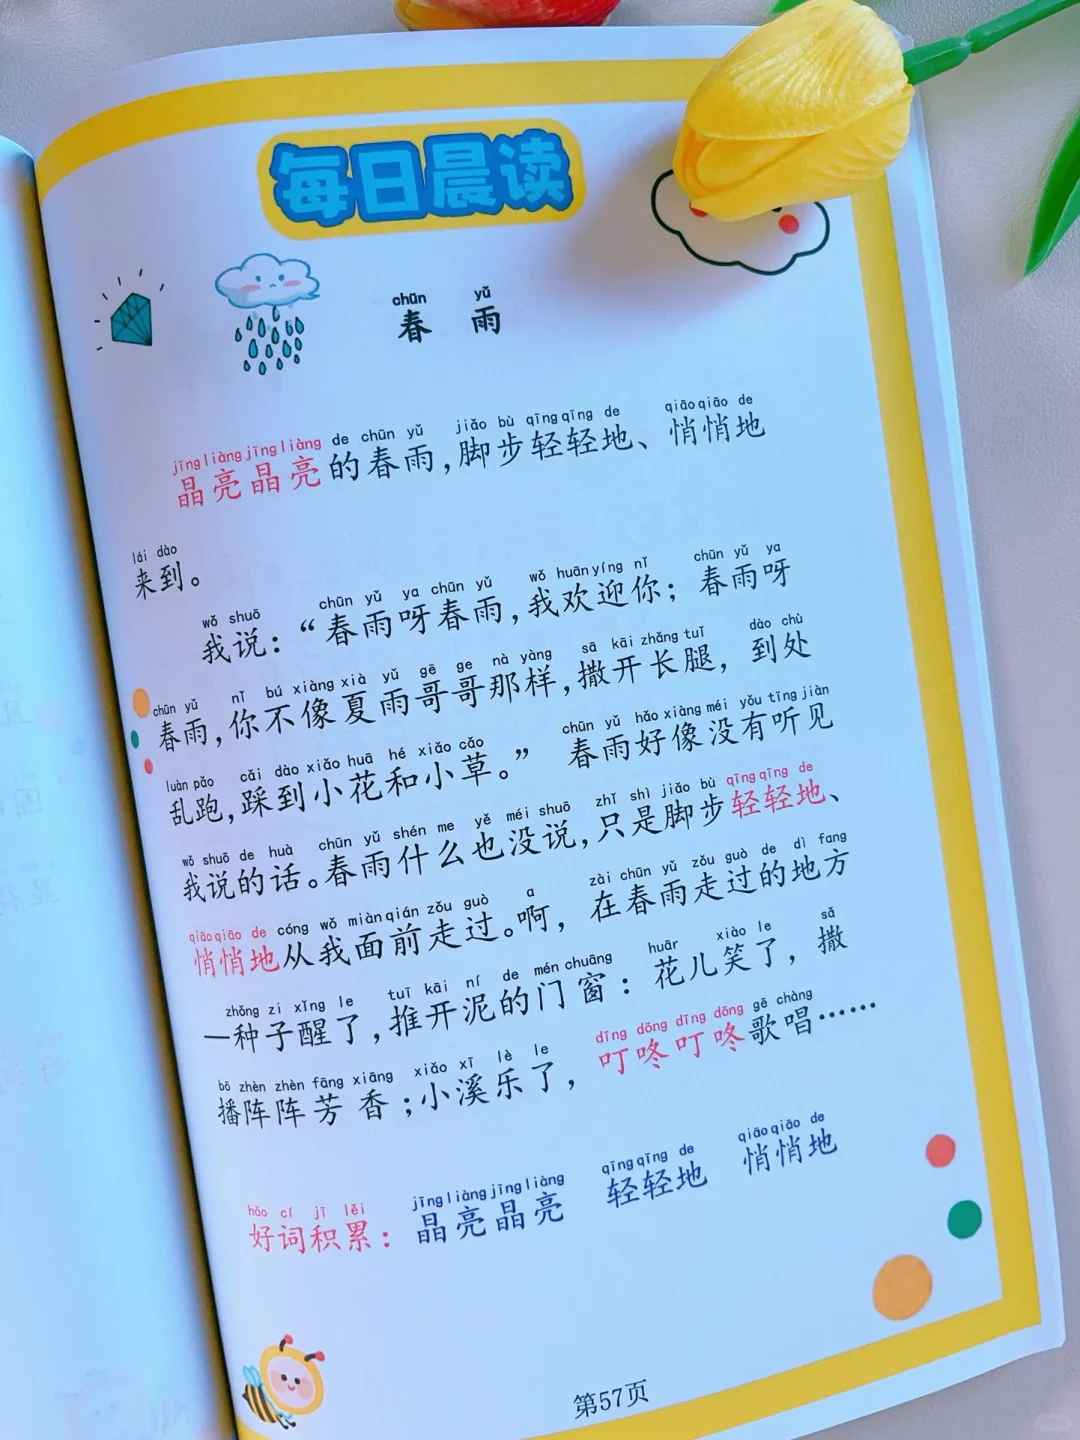 每日晨读
chūn yǔ
春 雨
jīng liàng jīng liàng de chūn yǔ jiǎo bù qīng qīng de qiāo qiāo de
晶亮晶亮的春雨，脚步轻轻地、悄悄地
lái dào
来到。
wǒ shuō chūn yǔ ya chūn yǔ wǒ huān yíng nǐ chūn yǔ ya
我说：“春雨呀春雨，我欢迎你；春雨呀
chūn yǔ nǐ bú xiàng xià yǔ gē ge nà yàng sā kāi zhǎng tuǐ dào chù
春雨，你不像夏雨哥哥那样，撒开长腿，到处
luàn pǎo cǎi dào xiǎo huā hé xiǎo cǎo chūn yǔ hǎo xiàng méi yǒu tīng jiàn
乱跑，踩到小花和小草。” 春雨好像没有听见
wǒ shuō de huà chūn yǔ shén me yě méi shuō zhǐ shì jiǎo bù qīng qīng de
我说的话。春雨什么也没说，只是脚步轻轻地、
qiāo qiāo de cóng wǒ miàn qián zǒu guò a zài chūn yǔ zǒu guò de dì fang
悄悄地从我面前走过。啊，在春雨走过的地方
zhǒng zi xǐng le tuī kāi ní de mén chuāng huār xiào le sǎ
一种子醒了，推开泥的门窗：花儿笑了，撒
bō zhèn zhèn fāng xiāng xiǎo xī lè le dīng dōng dīng dōng gē chàng
播阵阵芳香；小溪乐了，叮咚叮咚歌唱……
hǎo cí jī lěi jīng liàng jīng liàng qīng qīng de qiāo qiāo de
好词积累：晶亮晶亮 轻轻地 悄悄地
第57页